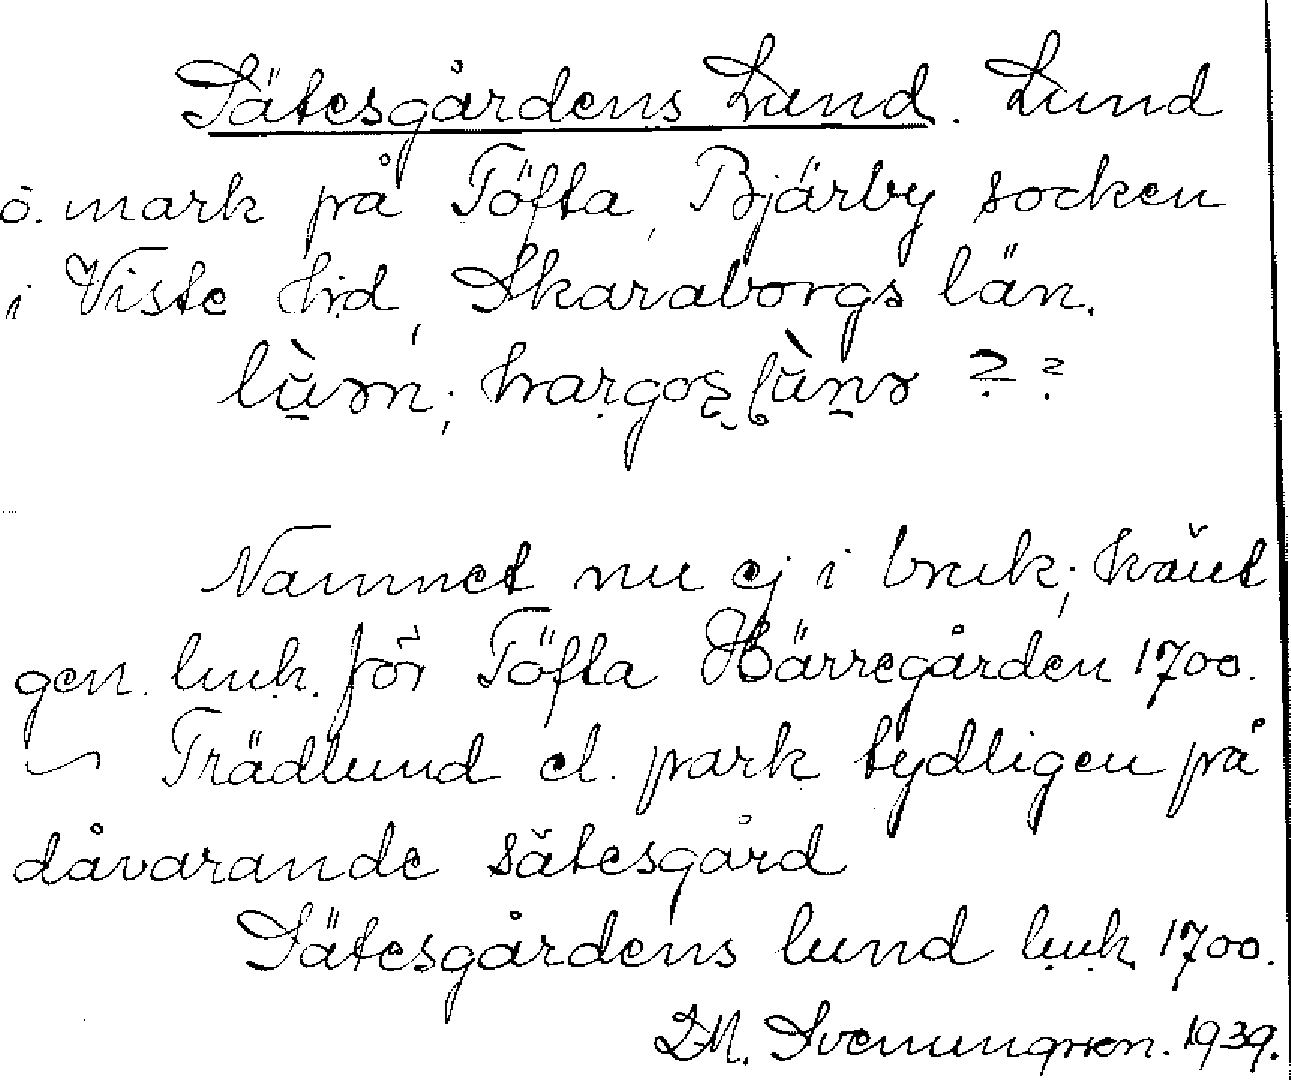 Sätesgårdens Lund. Lund
o. mark på Töfta, Bjärby socken
i Viste hrd, Skaraborgs län.
Namnet nu ej i bruk; känt
gen. luk. för Töfta Härregården 1700.
Trädlund el. park tydligen på
dåvarande sätesgård
Sätesgårdens lund luk 1700.
D.M. Svenungsson. 1939.